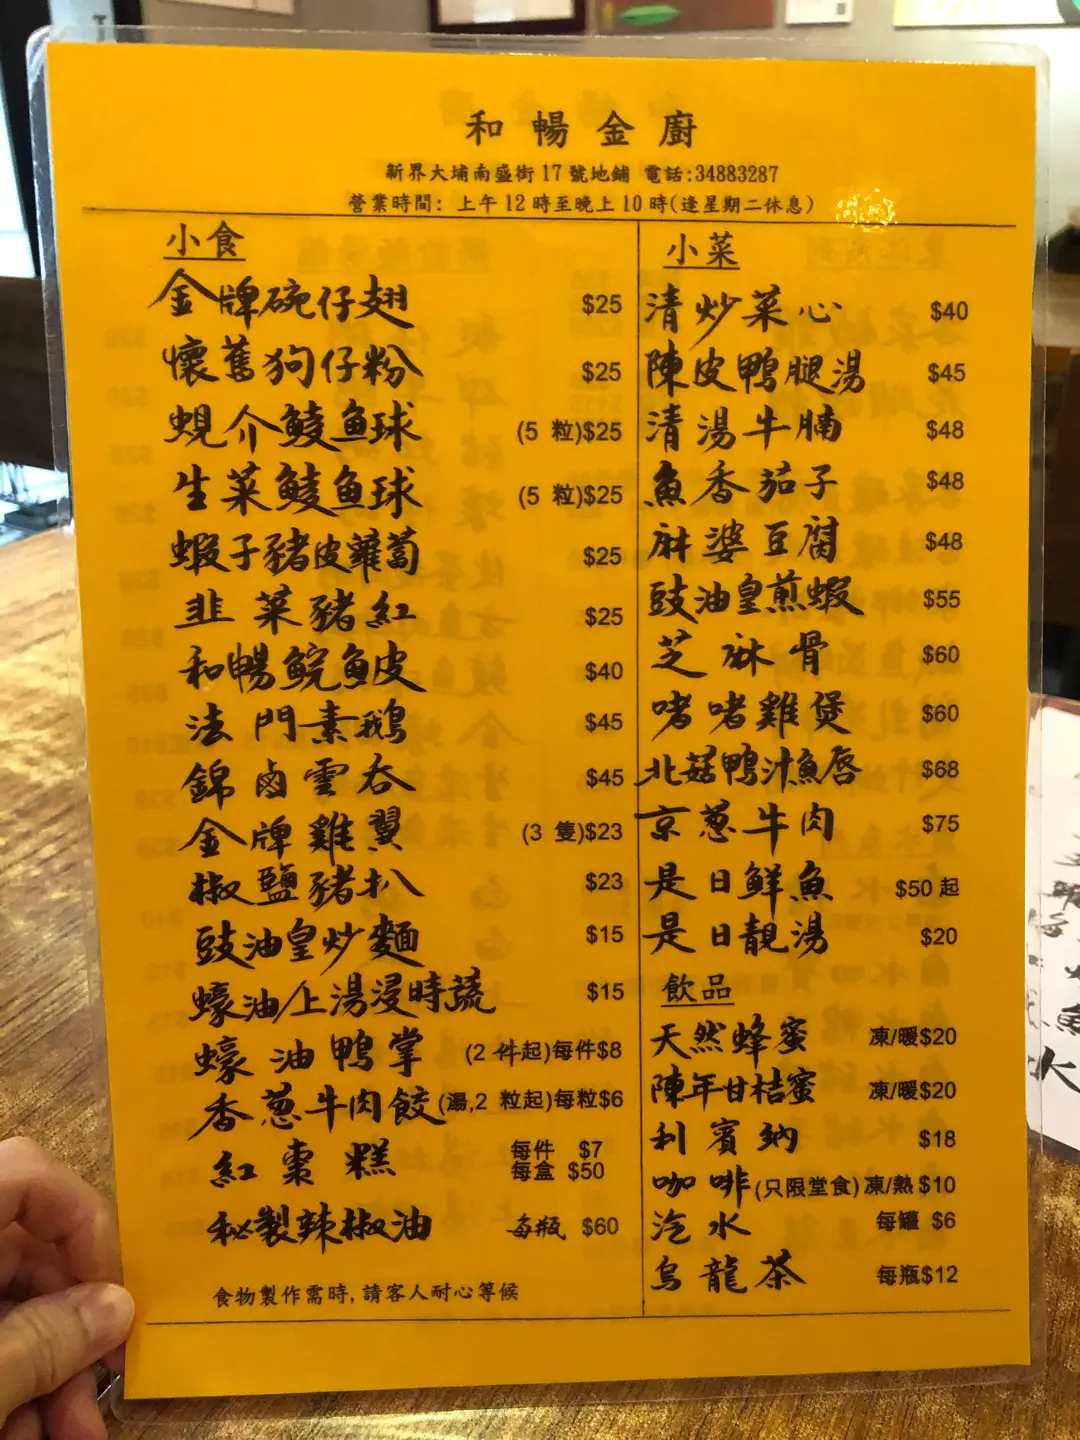 和暢金廚
新界大埔南盛街17號地鋪 電話:34883287
營業時間: 上午12時至晚上10時(逢星期二休息)
小食
金牌碗仔翅 $25
懷舊狗仔粉 $25
蜆介鯪魚球 (5 粒)$25
生菜鯪魚球 (5 粒)$25
蝦子豬皮蘿蔔 $25
韭菜豬紅 $25
和暢鯇魚皮 $40
法門素鵝 $45
錦鹵雲吞 $45
金牌雞翼 (3 隻)$23
椒鹽豬扒 $23
豉油皇炒麵 $15
蠔油/上湯浸時蔬 $15
蠔油鴨掌 (2 件起)每件$8
香蔥牛肉餃(湯,2 粒起)每粒$6
紅棗糕 每件 $7
每盒 $50
秘製辣椒油 每瓶 $60
食物製作需時,請客人耐心等候
小菜
清炒菜心 $40
陳皮鴨腿湯 $45
清湯牛腩 $48
魚香茄子 $48
麻婆豆腐 $48
豉油皇煎蝦 $55
芝麻骨 $60
啫啫雞煲 $60
北菇鴨汁魚唇 $68
京蔥牛肉 $75
是日鮮魚 $50 起
是日靚湯 $20
飲品
天然蜂蜜 凍/暖$20
陳年甘桔蜜 凍/暖$20
利賓納 $18
咖啡(只限堂食) 凍/熱 $10
汽水 每罐 $6
烏龍茶 每瓶$12